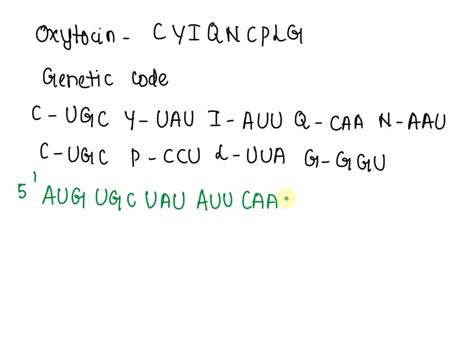 Oxytocin - CYIQNCPLG
Genetic code
C - UGC Y - UAU I - AUU Q - CAA N - AAU
C - UGC P - CCU L - UUA G - GGU
5' AUG UGC UAU AUU CAA